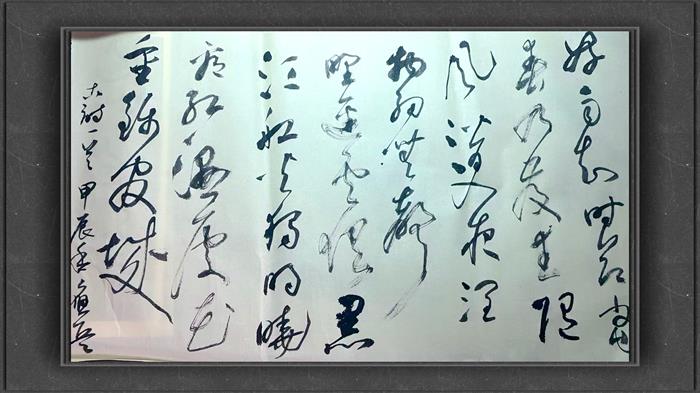 好雨知时节当
春乃发生随
风潜入夜润
物细无声
野径云俱黑
江船火独明晓
看红湿处花
重锦官城
古诗一首甲辰